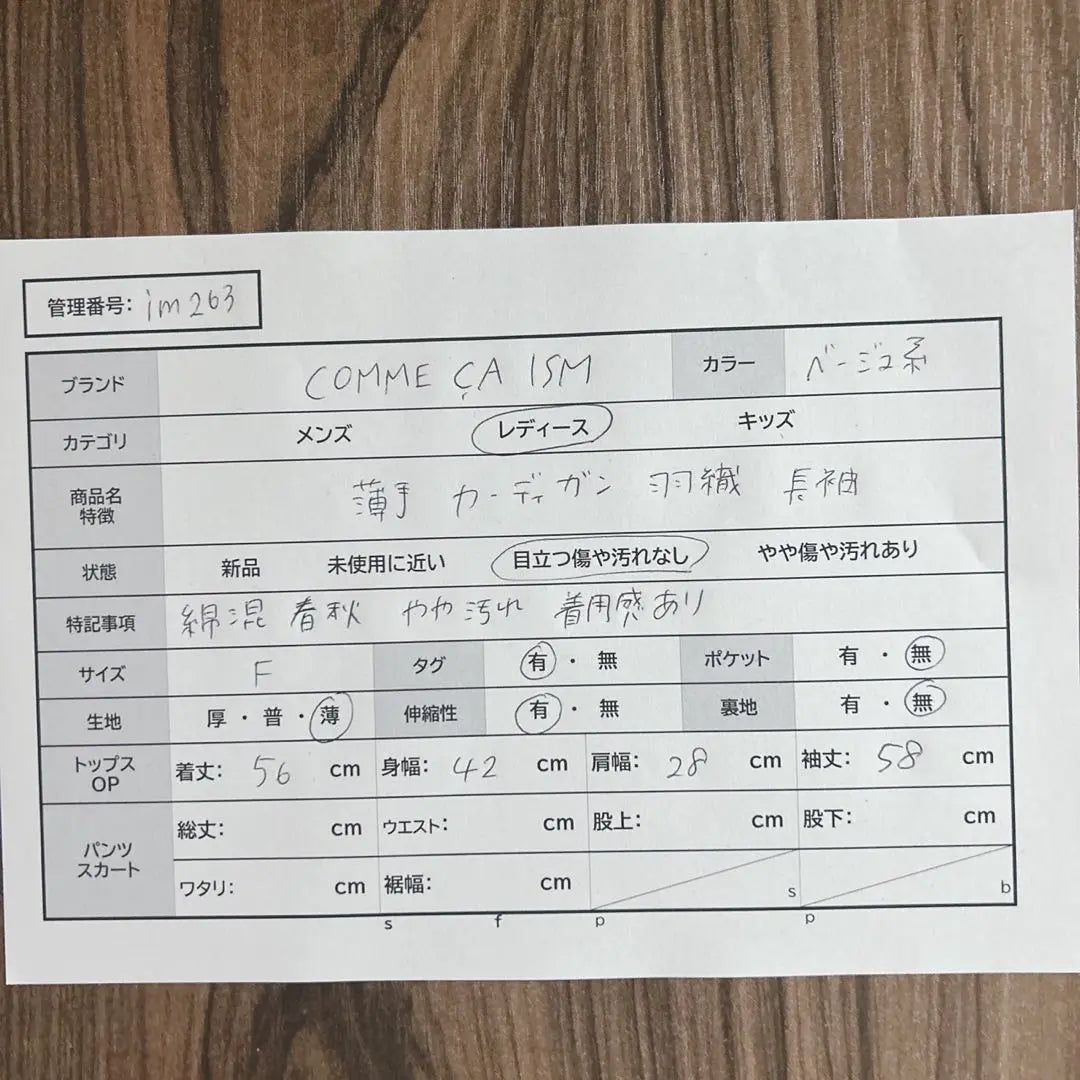 管理番号: im263
ブランド COMME ÇA ISM カラー ベージュ系
カテゴリ メンズ レディース キッズ
商品名 特徴 薄手 カーディガン 羽織 長袖
状態 新品 未使用に近い 目立つ傷や汚れなし やや傷や汚れあり
特記事項 綿混 春秋 やや汚れ 着用感あり
サイズ F タグ 有・無 ポケット 有・無
生地 厚・普・薄 伸縮性 有・無 裏地 有・無
トップス OP 着丈: 56 cm 身幅: 42 cm 肩幅: 28 cm 袖丈: 58 cm
パンツ スカート 総丈: cm ウエスト: cm 股上: cm 股下: cm
ワタリ: cm 裾幅: cm s b
s f p p